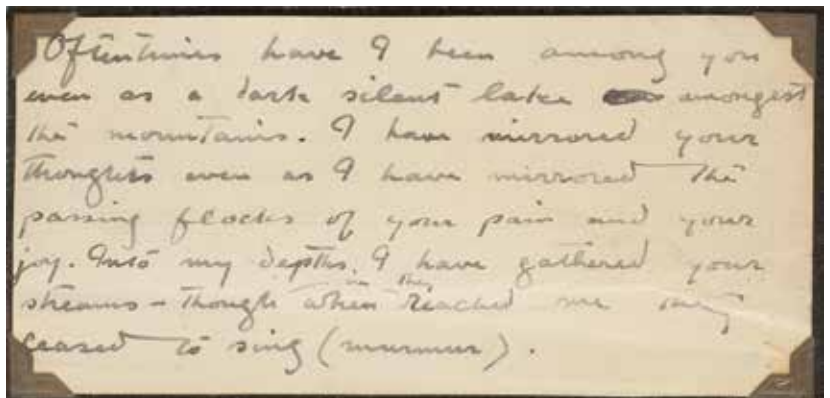 Oftentimes have I been among you
even as a dark silent lake amongst
the mountains. I have mirrored your
thoughts even as I have mirrored the
passing flocks of your pain and your
joy. Into my depths, I have gathered your
streams – though when they reached me they
ceased to sing (murmur).